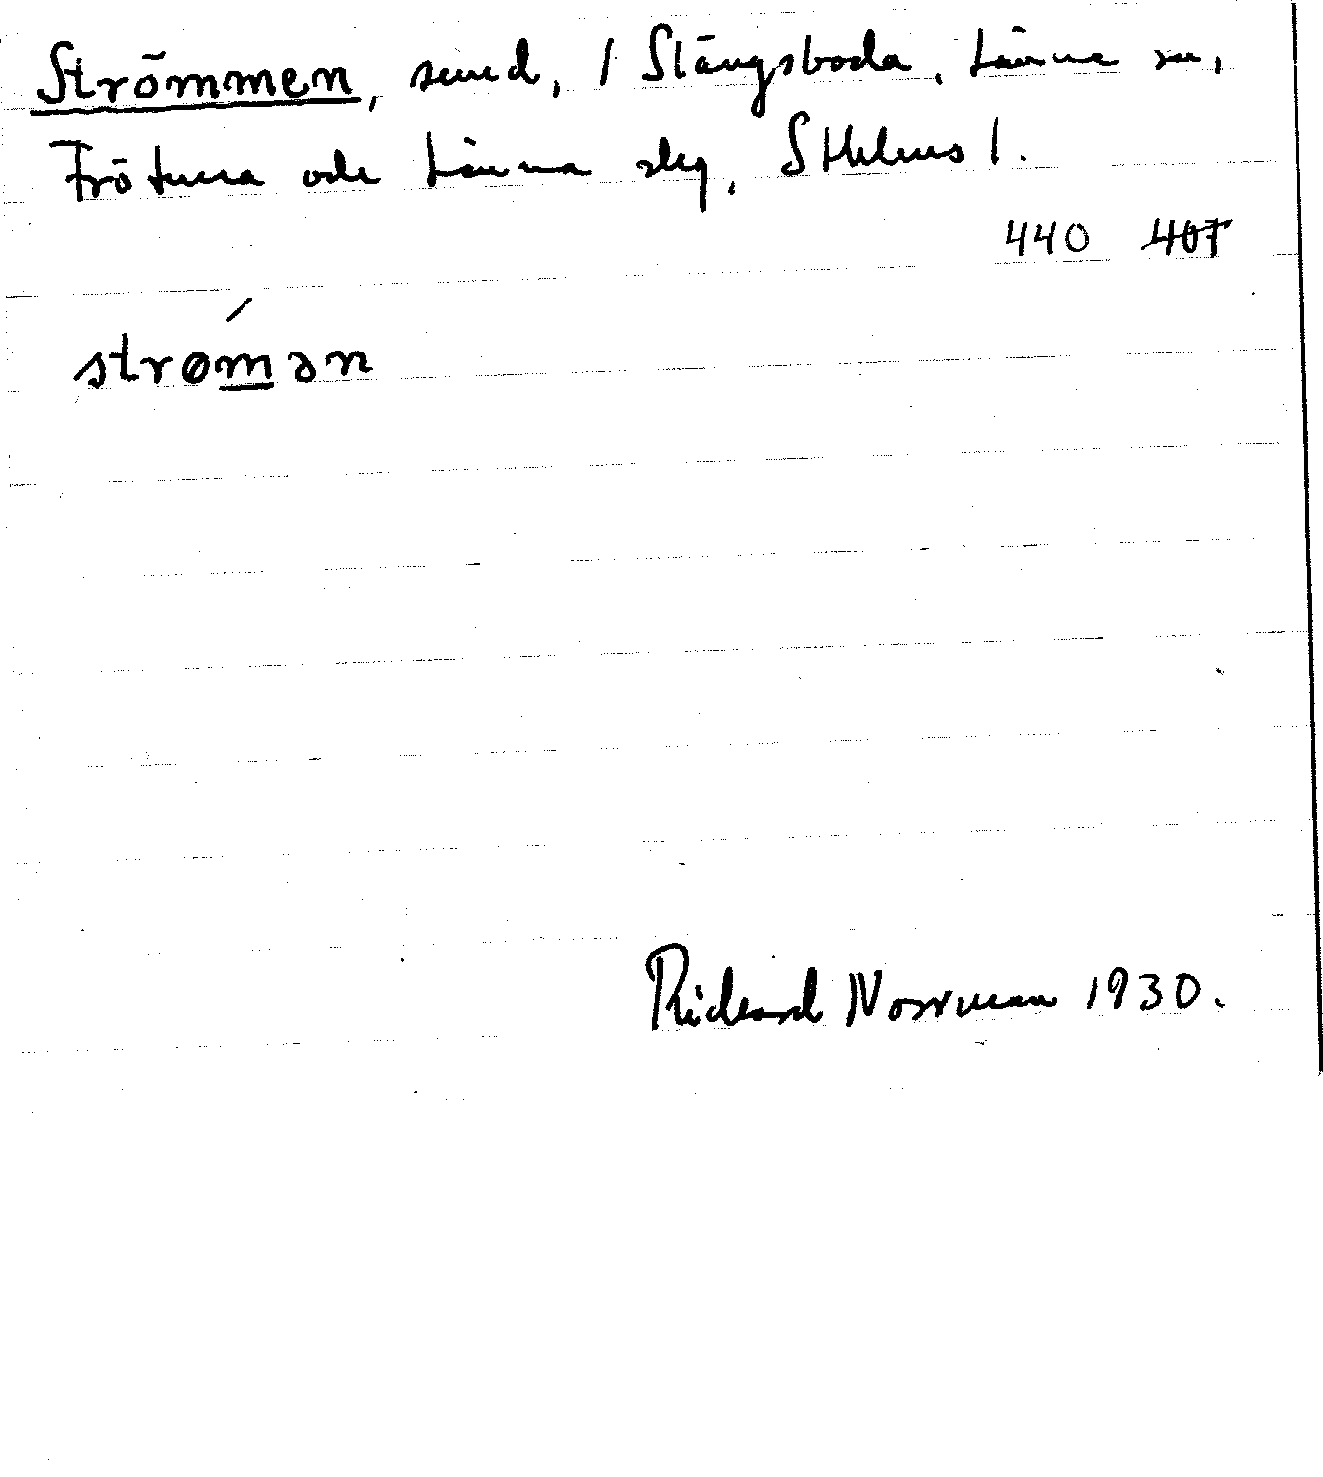 Strömmen, sund, / Slängsboda, Länna sn,
Frötuna och Länna skg, Sthlms l.
440 407
strømən
Richard Norrman 1930.